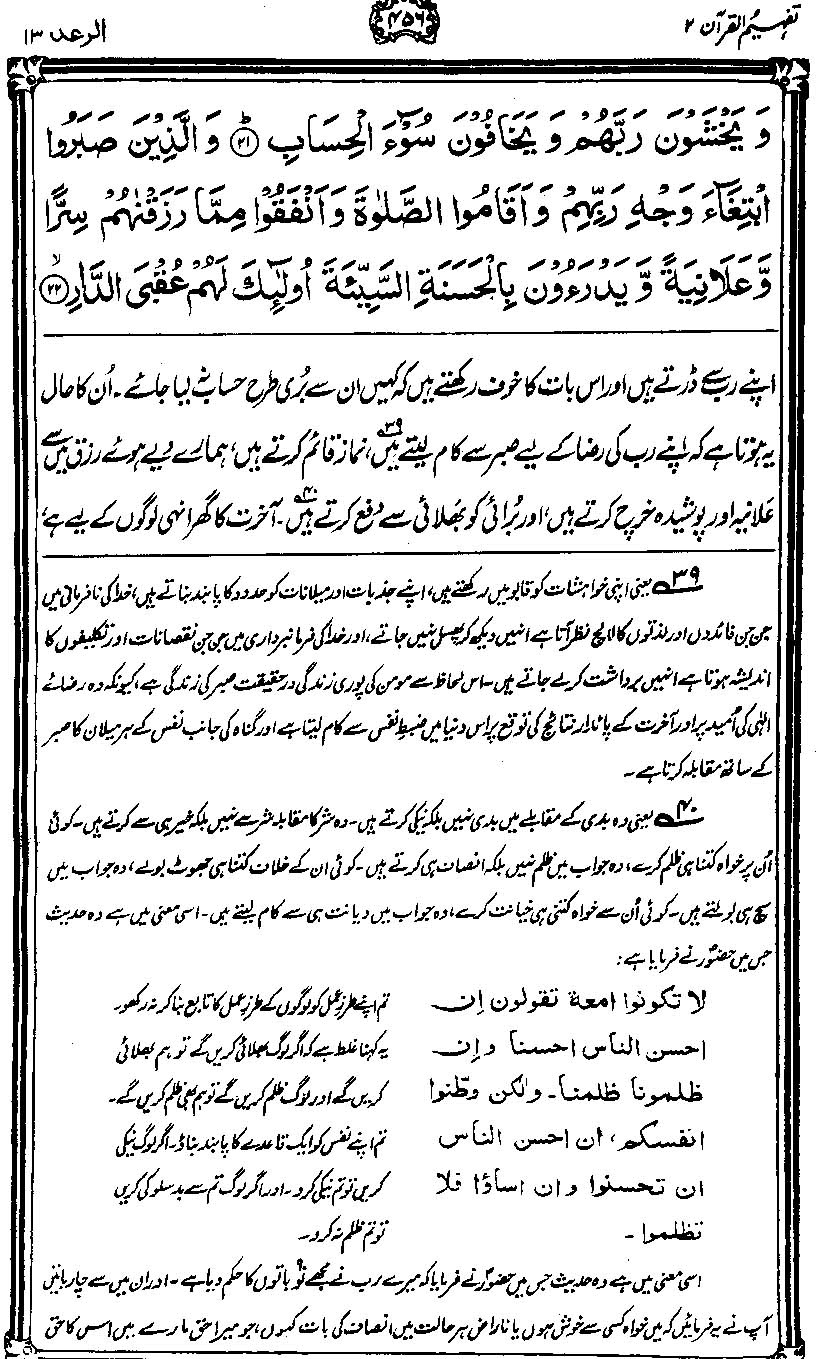 تفہیم القرآن ۲
۴۵۶
الرعد ۱۳
وَ يَخْشَوْنَ رَبَّهُمْ وَ يَخَافُوْنَ سُوْٓءَ الْحِسَابِ ؕ﴿۲۱﴾ وَ الَّذِيْنَ صَبَرُوا
ابْتِغَآءَ وَجْهِ رَبِّهِمْ وَ اَقَامُوا الصَّلٰوةَ وَ اَنْفَقُوْا مِمَّا رَزَقْنٰهُمْ سِرًّا
وَّ عَلَانِيَةً وَّ يَدْرَءُوْنَ بِالْحَسَنَةِ السَّيِّئَةَ اُولٰٓئِكَ لَهُمْ عُقْبَى الدَّارِ ۙ﴿۲۲﴾
اپنے رب سے ڈرتے ہیں اور اس بات کا خوف رکھتے ہیں کہ کہیں ان سے بُری طرح حساب نہ لیا جائے۔ اُن کا حال
یہ ہوتا ہے کہ اپنے رب کی رضا کے لیے صبر سے کام لیتے ہیں۳۹، نماز قائم کرتے ہیں، ہمارے دیے ہوئے رزق میں سے
علانیہ اور پوشیدہ خرچ کرتے ہیں، اور بُرائی کو بھلائی سے دفع کرتے ہیں۴۰۔ آخرت کا گھر انہی لوگوں کے لیے ہے،
۳۹ یعنی اپنی خواہشات کو قابو میں رکھتے ہیں، اپنے جذبات اور میلانات کو حدود کا پابند بناتے ہیں، خدا کی نافرمانی میں
جن جن فائدوں اور لذتوں کا لالچ نظر آتا ہے انہیں دیکھ کر پھسل نہیں جاتے، اور خدا کی فرمانبرداری میں جن جن نقصانات اور تکلیفوں کا
اندیشہ ہوتا ہے انہیں برداشت کر لے جاتے ہیں۔ اس لحاظ سے مومن کی پوری زندگی درحقیقت صبر کی زندگی ہے، کیونکہ وہ رضائے
الٰہی کی اُمید پر اور آخرت کے پائدار نتائج کی توقع پر اس دنیا میں ضبطِ نفس سے کام لیتا ہے اور گناہ کی جانب نفس کے ہر میلان کا صبر
کے ساتھ مقابلہ کرتا ہے۔
۴۰ یعنی وہ بدی کے مقابلے میں بدی نہیں بلکہ نیکی کرتے ہیں۔ وہ شر کا مقابلہ شر سے نہیں بلکہ خیر ہی سے کرتے ہیں۔ کوئی
اُن پر خواہ کتنا ہی ظلم کرے، وہ جواب میں ظلم نہیں بلکہ انصاف ہی کرتے ہیں۔ کوئی ان کے خلاف کتنا ہی جھوٹ بولے، وہ جواب میں
سچ ہی بولتے ہیں۔ کوئی اُن سے خواہ کتنی ہی خیانت کرے، وہ جواب میں دیانت ہی سے کام لیتے ہیں۔ اسی معنی میں ہے وہ حدیث
جس میں حضورؐ نے فرمایا ہے:
لا تکونوا امعة تقولون ان
احسن الناس احسنا و ان
ظلمونا ظلمنا۔ ولٰکن وطّنوا
انفسکم، ان احسن الناس
ان تحسنوا و ان اساؤا فلا
تظلموا۔
تم اپنے طرزِ عمل کو لوگوں کے طرزِ عمل کا تابع بنا کر نہ رکھو۔
یہ کہنا غلط ہے کہ اگر لوگ بھلائی کریں گے تو ہم بھلائی
کریں گے اور لوگ ظلم کریں گے تو ہم بھی ظلم کریں گے۔
تم اپنے نفس کو ایک قاعدے کا پابند بناؤ۔ اگر لوگ نیکی
کریں تو تم نیکی کرو۔ اور اگر لوگ تم سے بدسلوکی کریں
تو تم ظلم نہ کرو۔
اسی معنی میں ہے وہ حدیث جس میں حضورؐ نے فرمایا کہ میرے رب نے مجھے نو باتوں کا حکم دیا ہے۔ اور ان میں سے چار باتیں
آپ نے یہ فرمائیں کہ میں خواہ کسی سے خوش ہوں یا ناراض ہر حالت میں انصاف کی بات کہوں، جو میرا حق مارے میں اس کا حق